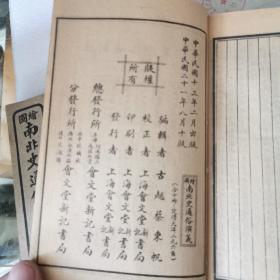 中華民國十三年二月出版
中華民國二十一年八月十版
繪圖南北史通俗演義
版權所有
編輯者 古越蔡東帆
校正者 上海會文堂
印刷者 上海會文堂新記書局
發行者 上海會文堂新記書局
總發行所 會文堂新記書局
分發行所 會文堂新記書局
繪圖南北史通